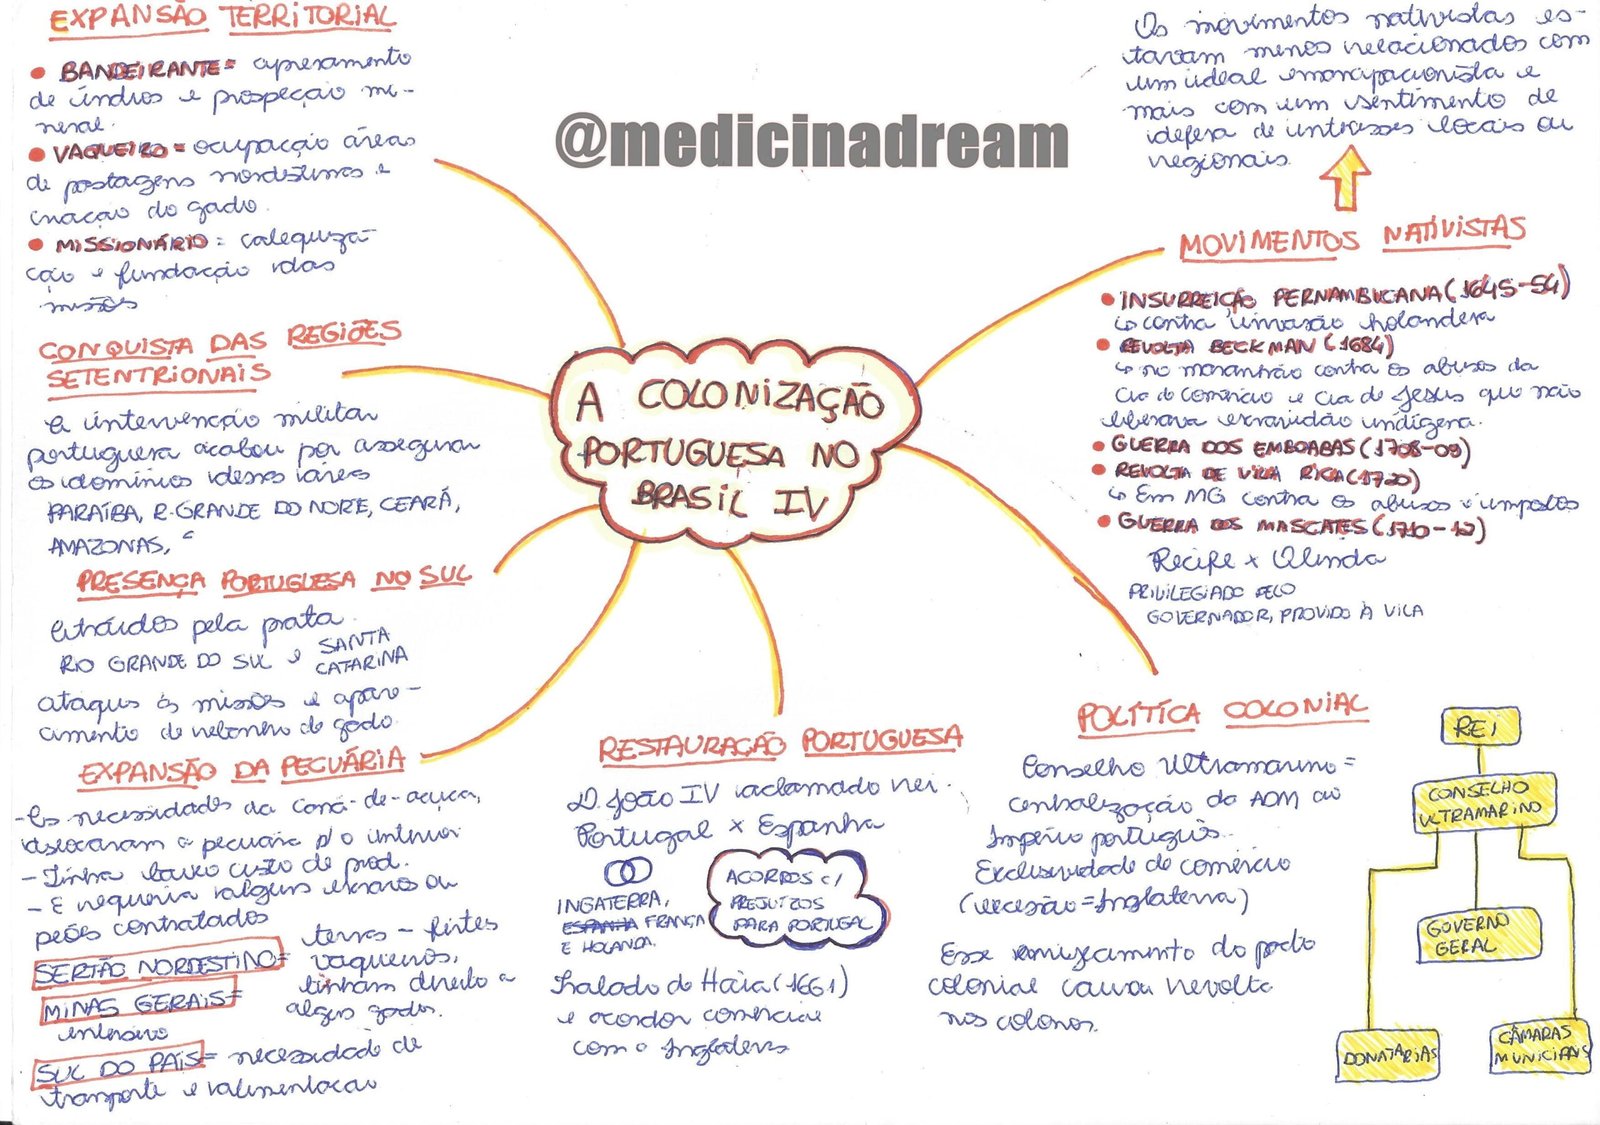 EXPANSÃO TERRITORIAL
• BANDEIRANTE = apresamento
de índios e prospeção mi-
neral.
• VAQUEIRO = ocupação áreas
de pastagens nordestinas e
criação do gado.
• MISSIONÁRIO = catequiza-
ção e fundação das
missões
CONQUISTA DAS REGIÕES
SETENTRIONAIS
A intervenção militar
portuguesa acabou por assegurar
os domínios dessas áreas
PARAÍBA, R. GRANDE DO NORTE, CEARÁ,
AMAZONAS,
PRESENÇA PORTUGUESA NO SUL
Atraídos pela prata.
RIO GRANDE DO SUL e SANTA
CATARINA
ataques às missões e
de rebanho de gado
EXPANSÃO DA PECUÁRIA
- As necessidades da cana-de-açúcar,
deslocaram a pecuária p/ o interior
- Tinha baixo custo de prod.
- E requeria alguns escravos ou
peões contratados
SERTÃO NORDESTINO = terras - fortes
vaqueiros,
tinham direito a
alguns gados.
MINAS GERAIS =
intensivo
SUL DO PAÍS = necessidade de
transporte e alimentação
@medicinadream
A COLONIZAÇÃO
PORTUGUESA NO
BRASIL IV
RESTAURAÇÃO PORTUGUESA
D. João IV aclamado rei.
Portugal x Espanha
INGATERRA,
ESPANHA FRANÇA
E HOLANDA.
ACORDOS C/
PREJUÍZOS
PARA PORTUGAL
Tratado de Haia (1661)
e acordos comerciais
com a Inglaterra
Os movimentos nativistas es-
tavam menos relacionados com
um ideal emancipacionista e
mais com um sentimento de
defesa de interesses locais ou
regionais.
MOVIMENTOS NATIVISTAS
• INSURREIÇÃO PERNAMBUCANA (1645-54)
↳ contra invasão holandesa
• REVOLTA BECKMAN (1684)
↳ no maranhão contra os abusos da
Cia de comércio e Cia de Jesus que não
liberava escravidão indígena.
• GUERRA DOS EMBOABAS (1708-09)
• REVOLTA DE VILA RICA (1720)
↳ Em MG contra os abusos e impostos
• GUERRA DOS MASCATES (1710-12)
Recife x Olinda
PRIVILEGIADO PELO
GOVERNADOR, PROVIDO À VILA
POLÍTICA COLONIAL
Conselho Ultramarino =
centralização da ADM ao
Império português.
Exclusividade de comércio
(exceção = Inglaterra)
Esse enrijecimento do pacto
colonial causou revolta
nos colonos.
REI
CONSELHO
ULTRAMARINO
GOVERNO
GERAL
DONATÁRIAS
CÂMARAS
MUNICIPAIS